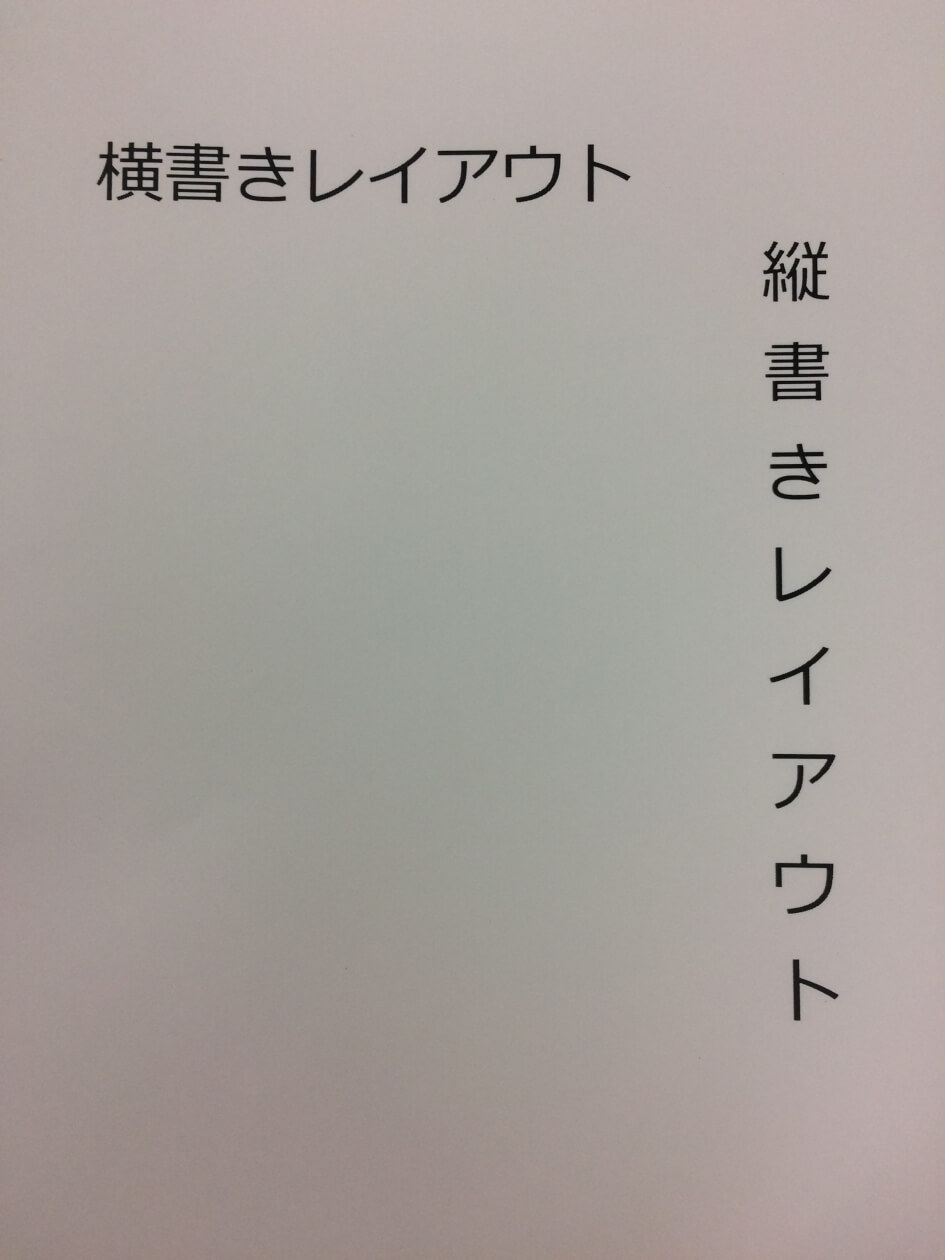 横書きレイアウト
縦書きレイアウト